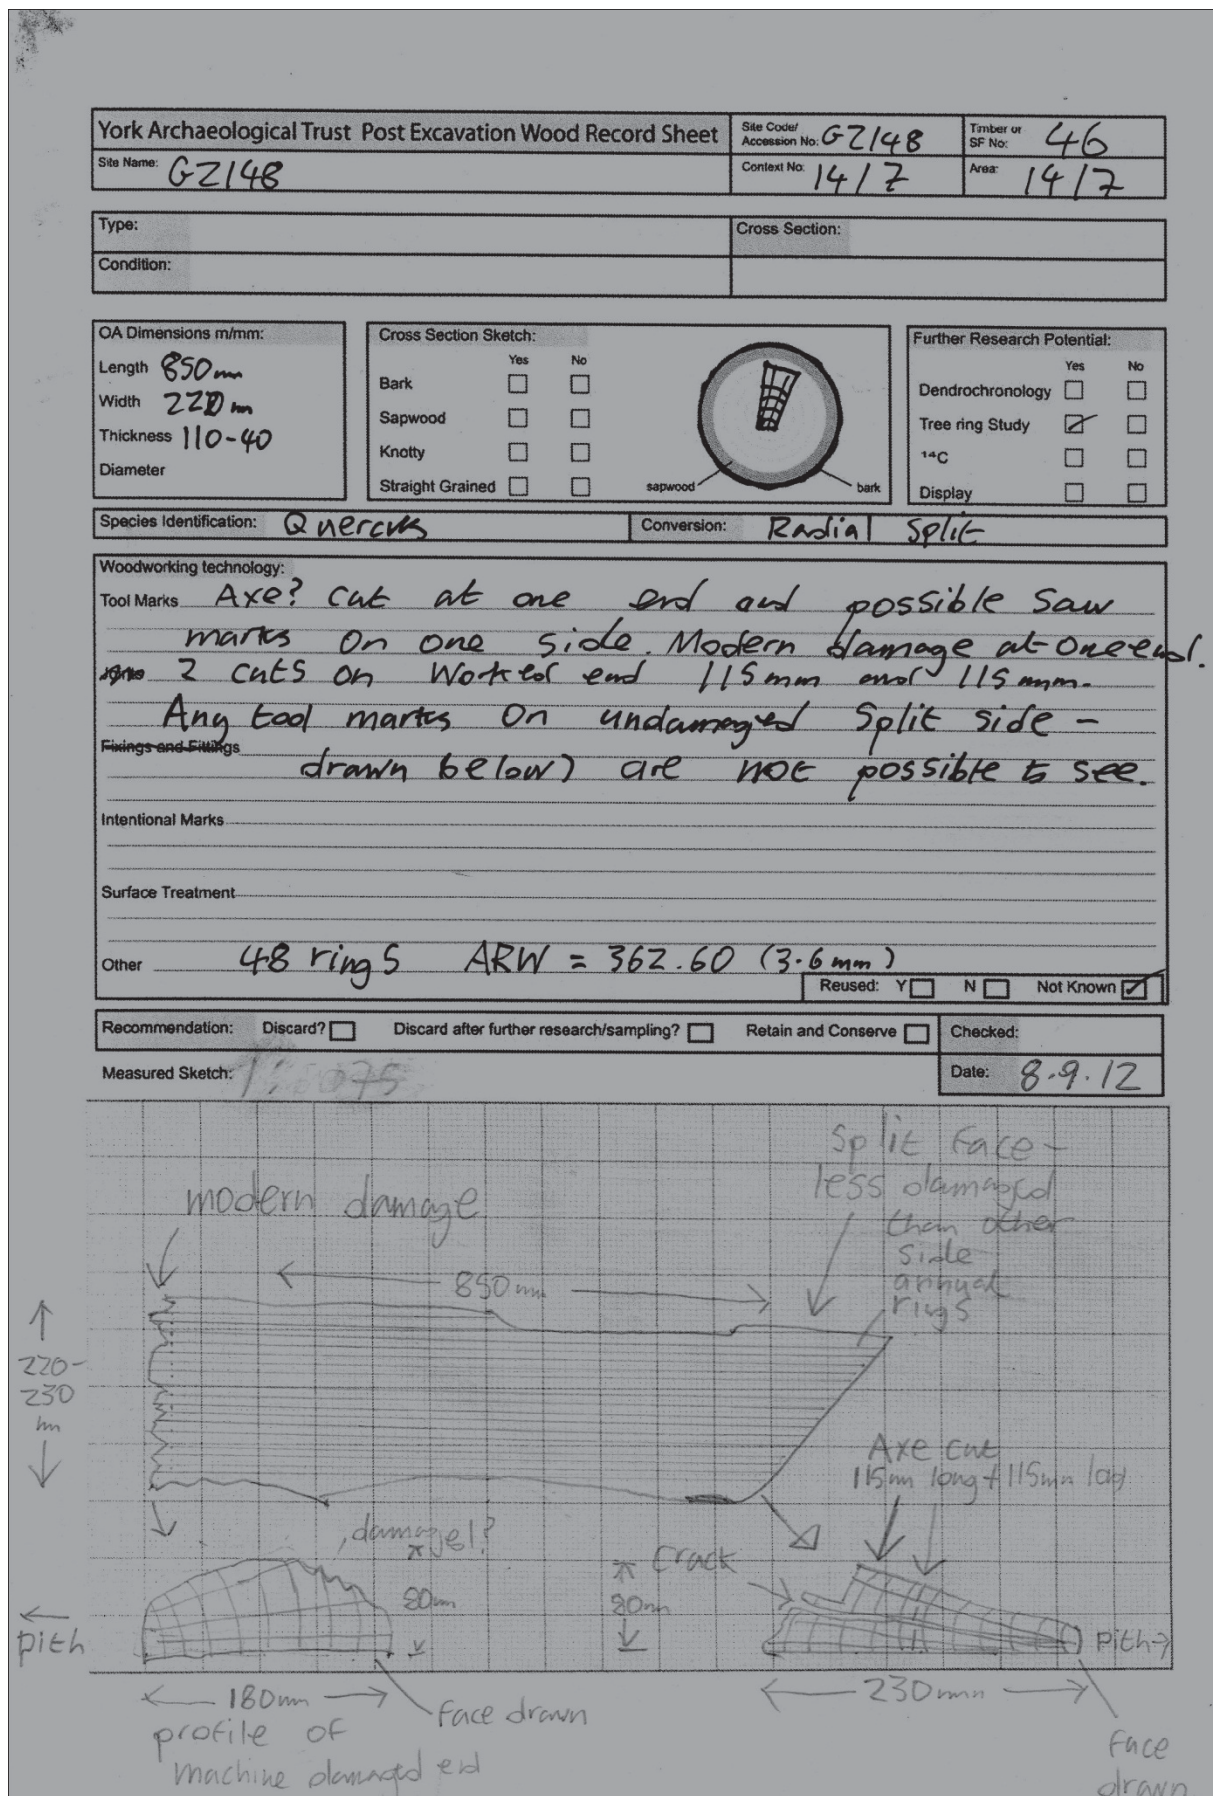 York Archaeological Trust Post Excavation Wood Record Sheet
Site Code/ Accession No: GZ148
Timber or SF No: 46
Site Name: GZ148
Context No: 14/7
Area: 14/7
Type:
Cross Section:
Condition:
OA Dimensions m/mm:
Length 850mm
Width 220 m
Thickness 110-40
Diameter
Cross Section Sketch:
Yes No
Bark
Sapwood
Knotty
Straight Grained
sapwood
bark
Further Research Potential:
Yes No
Dendrochronology
Tree ring Study
14C
Display
Species Identification: Quercus
Conversion: Radial Split
Woodworking technology:
Tool Marks Axe? cut at one end and possible saw
marks on one side. Modern damage at one end.
2 cuts on worked end 115mm and 115mm.
Any tool marks on undamaged split side -
Fixings and Fittings
drawn below) are not possible to see.
Intentional Marks
Surface Treatment
Other 48 rings ARW = 362.60 (3.6mm)
Reused: Y N Not Known
Recommendation: Discard? Discard after further research/sampling? Retain and Conserve
Checked:
Measured Sketch:
Date: 8.9.12
Split Face -
less damaged
than other
side
annual
rings
modern damage
850mm
220-
230
mm
Axe cut
115mm long + 115mm long
damage!?
80mm
Crack
80mm
pith
Pith
180mm
Face drawn
230mm
profile of
machine damaged end
Face
drawn